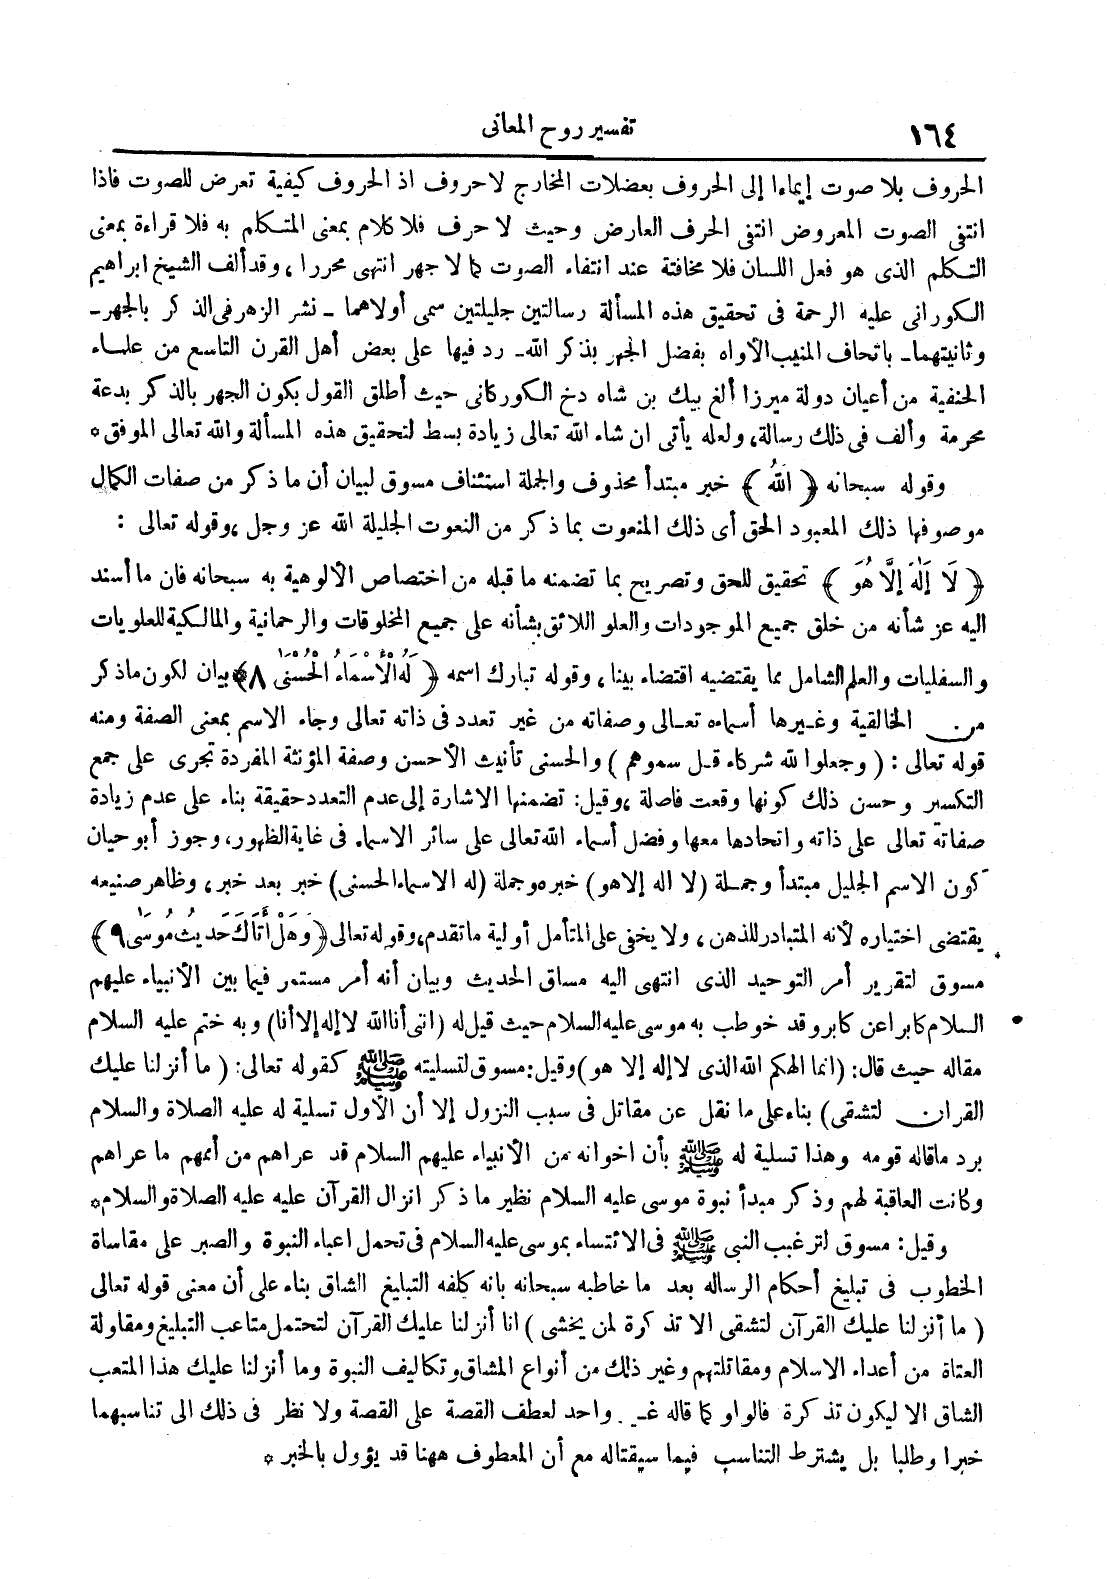 ١٦٤
تفسير روح المعانى
الحروف بلا صوت إيماءا إلى الحروف بعضلات المخارج لا حروف اذ الحروف كيفية تعرض للصوت فاذا
انتفى الصوت المعروض انتفى الحرف العارض وحيث لا حرف فلا كلام بمعنى المتكلم به فلا قراءة بمعنى
التكلم الذى هو فعل اللسان فلا مخافتة عند انتفاء الصوت كما لا جهر انتهى محررا ، وقد ألف الشيخ ابراهيم
الكورانى عليه الرحمة فى تحقيق هذه المسألة رسالتين جليلتين سمى أولاهما ــ نشر الزهر فى الذكر بالجهر ــ
وثانيتهما ــ باتحاف المنيب الأواه بفضل الجهر بذكر الله ــ رد فيها على بعض أهل القرن التاسع من علماء
الحنفية من أعيان دولة ميرزا ألغ بيك بن شاه دخ الكوركانى حيث أطلق القول بكون الجهر بالذكر بدعة
محرمة وألف فى ذلك رسالة، ولعله يأتى ان شاء الله تعالى زيادة بسط لتحقيق هذه المسألة والله تعالى الموفق *
وقوله سبحانه ﴿ اللهُ ﴾ خبر مبتدأ محذوف والجملة استئناف مسوق لبيان أن ما ذكر من صفات الكمال
موصوفها ذلك المعبود الحق أى ذلك المنعوت بما ذكر من النعوت الجليلة الله عز وجل ،وقوله تعالى :
﴿ لَا إِلَٰهَ إِلَّا هُوَ ﴾ تحقيق للحق وتصريح بما تضمنه ما قبله من اختصاص الألوهية به سبحانه فان ما أسند
اليه عز شأنه من خلق جميع الموجودات والعلو اللائق بشأنه على جميع المخلوقات والرحمانية والمالكية للعلويات
والسفليات والعلم الشامل مما يقتضيه اقتضاء بينا ، وقوله تبارك اسمه ﴿ لَهُ الْأَسْمَاءُ الْحُسْنَىٰ ٨ ﴾ بيان لكون ما ذكر
من الخالقية وغيرها أسماءه تعالى وصفاته من غير تعدد فى ذاته تعالى وجاء الاسم بمعنى الصفة ومنه
قوله تعالى : ( وجعلوا لله شركاء قل سموهم ) والحسنى تأنيث الأحسن وصفة المؤنثة المفردة تجرى على جمع
التكسير وحسن ذلك كونها وقعت فاصلة ،وقيل: تضمنها الاشارة إلى عدم التعدد حقيقة بناء على عدم زيادة
صفاته تعالى على ذاته واتحادها معها وفضل أسماء الله تعالى على سائر الاسماء فى غاية الظهور، وجوز أبو حيان
كون الاسم الجليل مبتدأ وجملة (لا اله إلا هو) خبره وجملة (له الاسماء الحسنى) خبر بعد خبر ، وظاهر صنيعه
يقتضى اختياره لأنه المتبادر للذهن ، ولا يخفى على المتأمل أولية ما تقدم، وقوله تعالى ﴿ وَهَلْ أَتَاكَ حَدِيثُ مُوسَىٰ ٩ ﴾
مسوق لتقرير أمر التوحيد الذى انتهى اليه مساق الحديث وبيان أنه أمر مستمر فيما بين الأنبياء عليهم
السلام كابرا عن كابر وقد خوطب به موسى عليه السلام حيث قيل له (اننى أنا الله لا إله إلا أنا) وبه ختم عليه السلام
مقاله حيث قال: (انما الهكم الله الذى لا إله إلا هو) وقيل: مسوق لتسليته ﷺ كقوله تعالى: ( ما أنزلنا عليك
القران لتشقى ) بناء على ما نقل عن مقاتل فى سبب النزول إلا أن الأول تسلية له عليه الصلاة والسلام
برد ما قاله قومه وهذا تسلية له ﷺ بأن اخوانه من الأنبياء عليهم السلام قد عراهم من أممهم ما عراهم
وكانت العاقبة لهم وذكر مبدأ نبوة موسى عليه السلام نظير ما ذكر انزال القرآن عليه عليه الصلاة والسلام *
وقيل: مسوق لترغيب النبى ﷺ فى الائتساء بموسى عليه السلام فى تحمل اعباء النبوة والصبر على مقاساة
الخطوب فى تبليغ أحكام الرساله بعد ما خاطبه سبحانه بانه كلفه التبليغ الشاق بناء على أن معنى قوله تعالى
( ما أنزلنا عليك القرآن لتشقى الا تذكرة لمن يخشى ) انا أنزلنا عليك القرآن لتحتمل متاعب التبليغ ومقاولة
العتاة من أعداء الاسلام ومقاتلتهم وغير ذلك من أنواع المشاق وتكاليف النبوة وما أنزلنا عليك هذا المتعب
الشاق الا ليكون تذكرة فالواو كما قاله غير واحد لعطف القصة على القصة ولا نظر فى ذلك الى تناسبهما
خبرا وطلبا بل يشترط التناسب فيما سيقتاله مع أن المعطوف ههنا قد يؤول بالخبر *